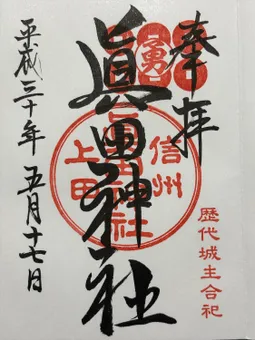 奉拝
歴代城主合祀
眞田神社
勇
信州
上田
眞田神社
平成三十年五月十七日